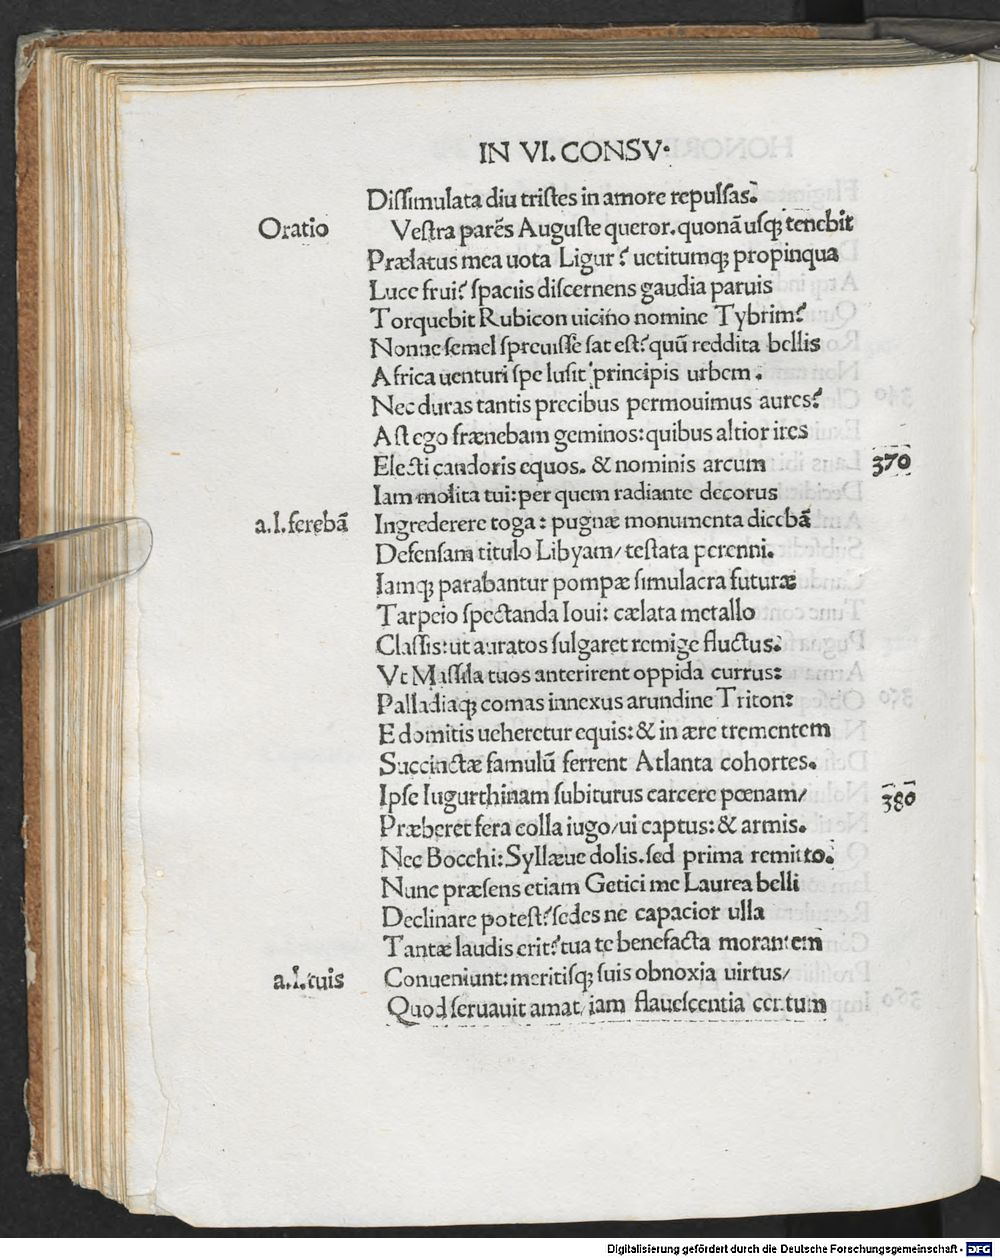 IN VI. CONSV.
Diſſimulata diu triſtes in amore repulſas.
Oratio Veſtra parēs Auguſte queror. quonā uſq; tenebit
Prælatus mea uota Ligur? uetitumq; propinqua
Luce frui? ſpaciis diſcernens gaudia paruis
Torquebit Rubicon uicino nomine Tybrim?
Nonne ſemel ſpreuiſſe ſat eſt? quū reddita bellis
Africa uenturi ſpe luſit principis urbem.
Nec duras tantis precibus permouimus aures?
Aſt ego frænebam geminos: quibus altior ires
Electi candoris equos. & nominis arcum 370
Iam molita tui: per quem radiante decorus
a.l.ferebā Ingrederere toga: pugnæ monumenta dicebā
Defenſam titulo Libyam/ teſtata perenni.
Iamq; parabantur pompæ ſimulacra futuræ
Tarpeio ſpectanda Ioui: cælata metallo
Claſſis: ut auratos ſulgaret remige fluctus.
Vt Maſſila tuos anterirent oppida currus:
Palladiaq; comas innexus arundine Triton:
Edomitis ueheretur equis: & in ære trementem
Succinctæ famulū ferrent Atlanta cohortes.
Ipſe Iugurthinam ſubiturus carcere pœnam/ 380
Præberet fera colla iugo/ ui captus: & armis.
Nec Bocchi: Syllæue dolis. ſed prima remitto.
Nunc præſens etiam Getici me Laurea belli
Declinare poteſt? ſedes ne capacior ulla
Tantæ laudis erit? tua te benefacta morantem
a.l.tuis Conueniunt: meritiſq; ſuis obnoxia uirtus/
Quod ſeruauit amat/ iam flaueſcentia centum
Digitalisierung gefördert durch die Deutsche Forschungsgemeinschaft - DFG